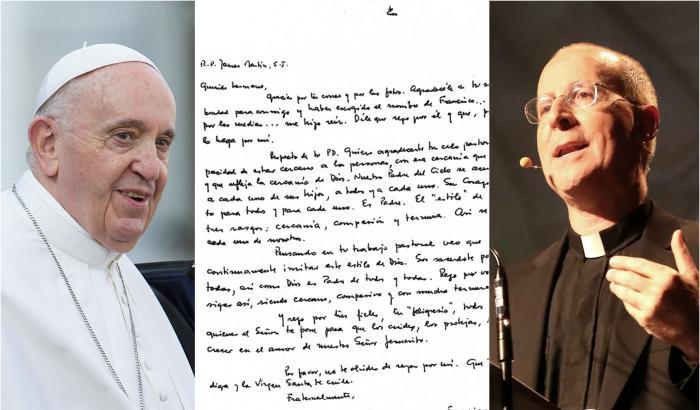 R.P. James Martin, S.J.
Querido hermano,
Gracias por tu correo y por las fotos. Agradecele a tu s
bondad para conmigo y haber escogido el nombre de Francisco...
por las medias... me hizo reir. Dile que rezo por él y que, p
lo haga por mí.
Respecto de tu PD. Quiero agradecerte tu celo pastor
pacidad de estar cercano a las personas, con esa cercanía que
y que refleja la cercanía de Dios. Nuestro Padre del Cielo se acer
a cada uno de sus hijos, a todos y a cada uno. Su Corazó
to para todos y para cada uno. Es Padre. El "estilo" de
tres rasgos: cercanía, compasión y ternura. Así se
cada uno de nosotros.
Pensando en tu trabajo pastoral veo que
continuamente imitar este estilo de Dios. Sos sacerdote p
todas, así como Dios es Padre de todos y todas. Rezo por vo
sigas así, siendo cercano, compasivo y con mucha ternura
Y rezo por tus fieles, tu "feligresía", todos
quienes el Señor te pone para que los cuides, los protejas,
crecer en el amor de nuestro Señor Jesucristo.
Por favor, no te olvides de rezar por mí. Que
diga y la Virgen Santa te cuide.
Fraternalmente,